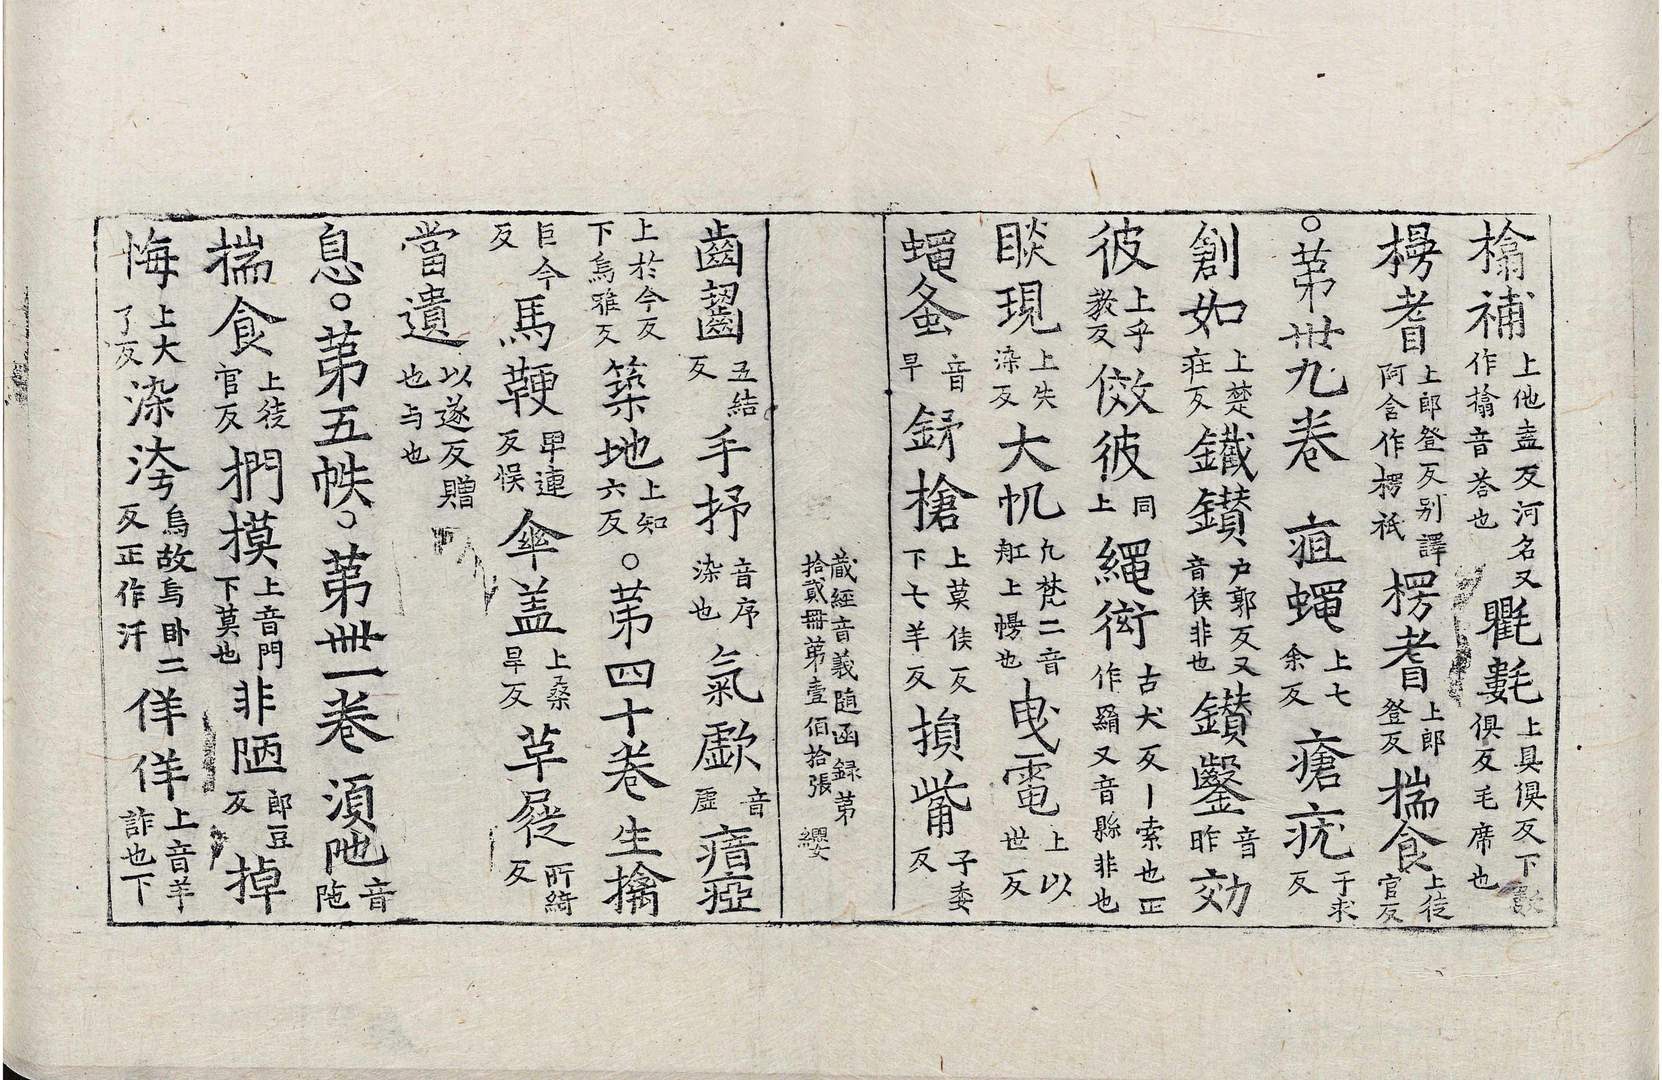 㯓補上他盍反河名又作㯓音荅也氍㲣上具俱反下
俱反毛席也
楞耆上郎登反别譯阿含作楞祇楞耆上郎登反揣食上徒官反
○苐卅九卷 疽蠅上七余反瘡疣于求反
創如上楚在反鑯鑽户郭反又音侯非也鑚鑿音昨効
彼上乎教反傚彼同上繩衒古犬反丨索也正作羂又音縣非也
睒現上失染反大帆凡梵二音舡上幔也曳電上以世反
蠅蚤音早鉾槍上莫侯反下七羊反損觜子委反
蔵經音義随函録苐拾貳冊苐壹佰拾張 纓
齒齧五結反手抒音序染也氣歔音虛瘖瘂
上於今反下烏雅反築地上知六反○苐四十卷生擒
巨今反馬鞕卑連反悮傘盖上桑旱反草屣所綺反
當遺以遂反贈也与也
息○苐五帙○苐卌一卷 湏阤音陁
揣食上徒官反捫摸上音門下莫也非陋郎豆反掉
悔上大了反染洿烏故烏卧二反正作汙佯佯上音羊詐也下